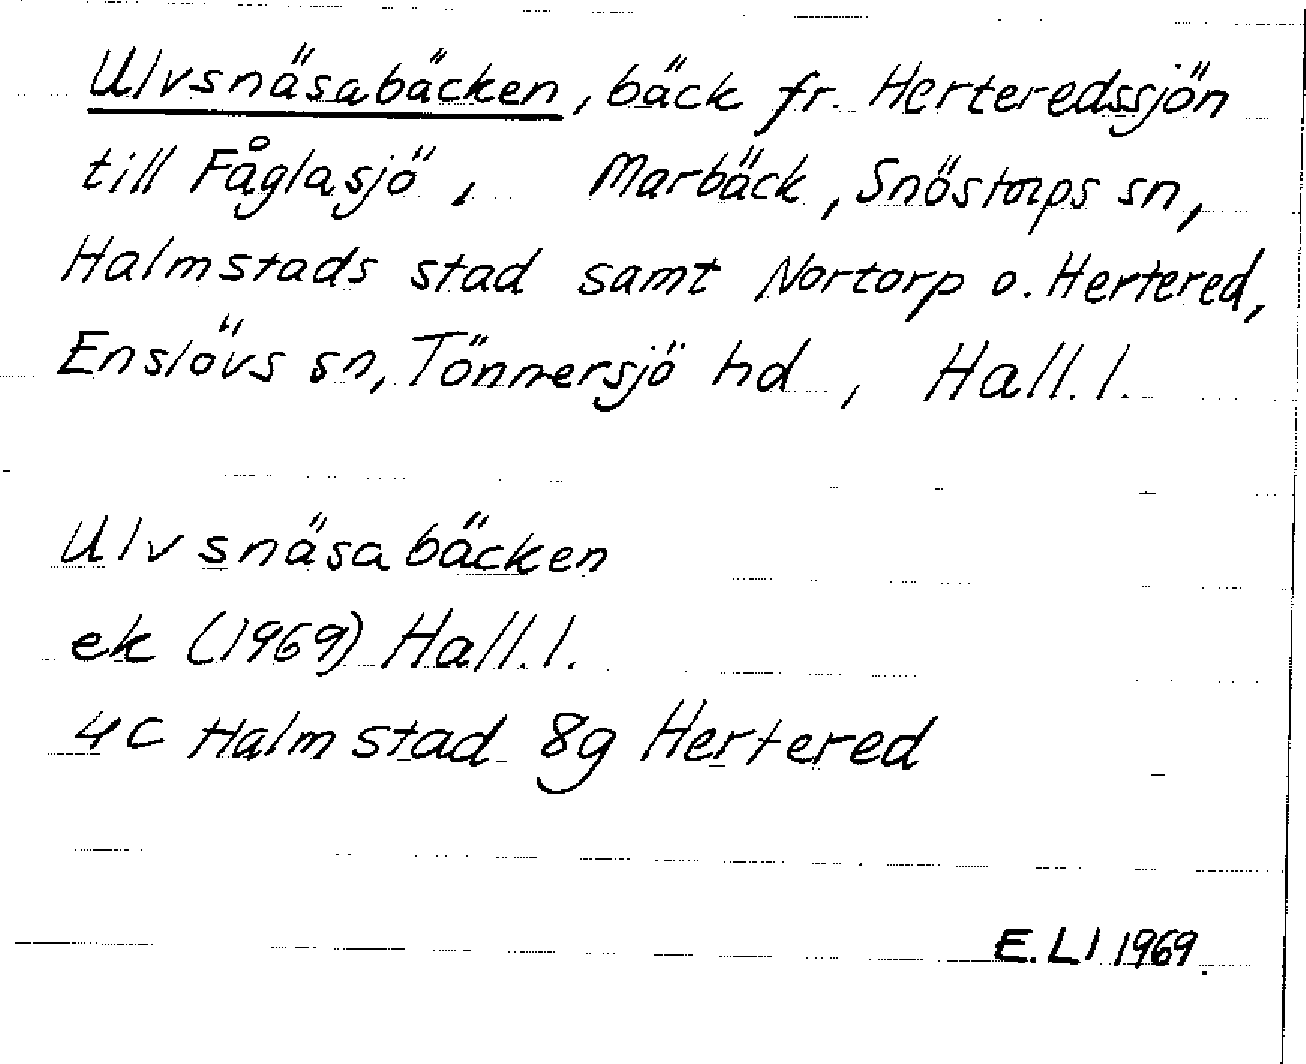 Ulvsnäsabäcken, bäck fr. Herteredssjön
till Fåglasjö, Marbäck, Snöstorps sn,
Halmstads stad samt Nortorp o. Hertered,
Enslövs sn, Tönnersjö hd, Hall. l.
Ulvsnäsabäcken
ek (1969) Hall. l.
4C Halmstad 8g Hertered
E. Ll 1969.